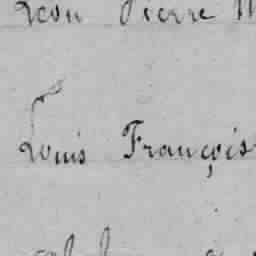 Léon Pierre M
Louis François